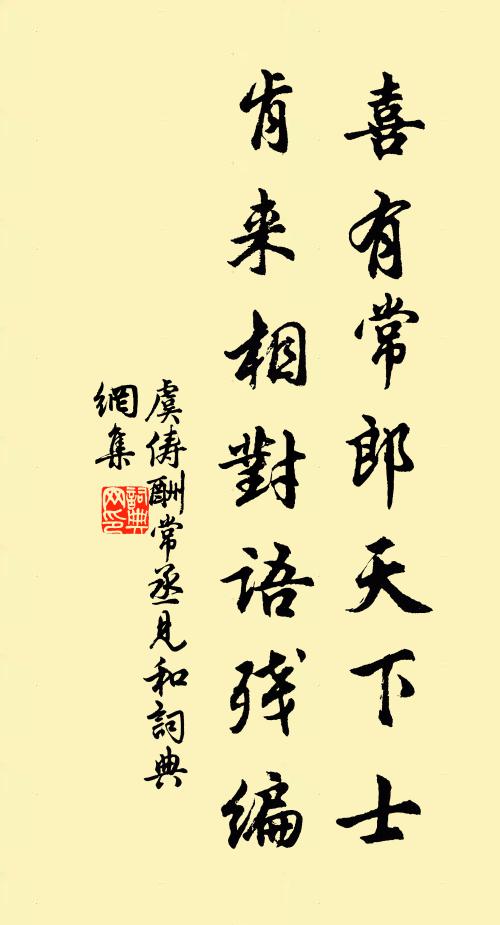 喜有常郎天下士
肯来相對语残编
虞俦酬常丞見和詞典
網集
詞典
网印